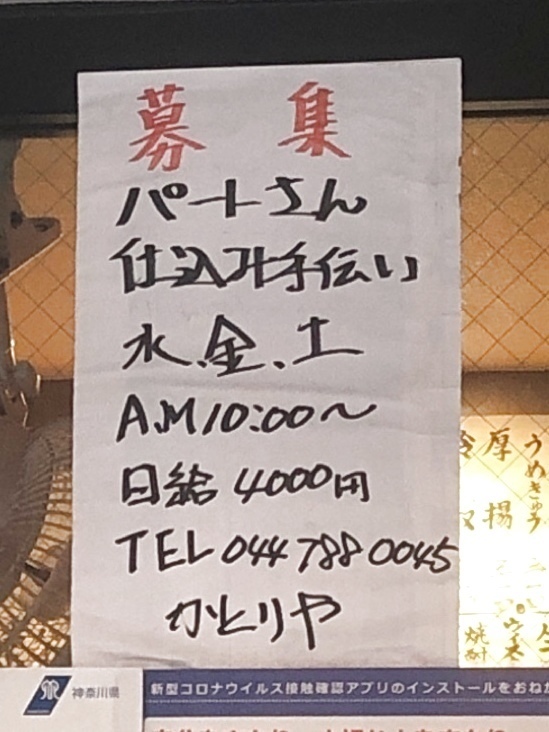 募 集
パートさん
仕込み手伝い
水、金、土
A.M10:00〜
日給 4000円
TEL 044 788 0045
かとりや
厚揚
うめきゅう
神奈川県
新型コロナウイルス接触確認アプリのインストールをおねが